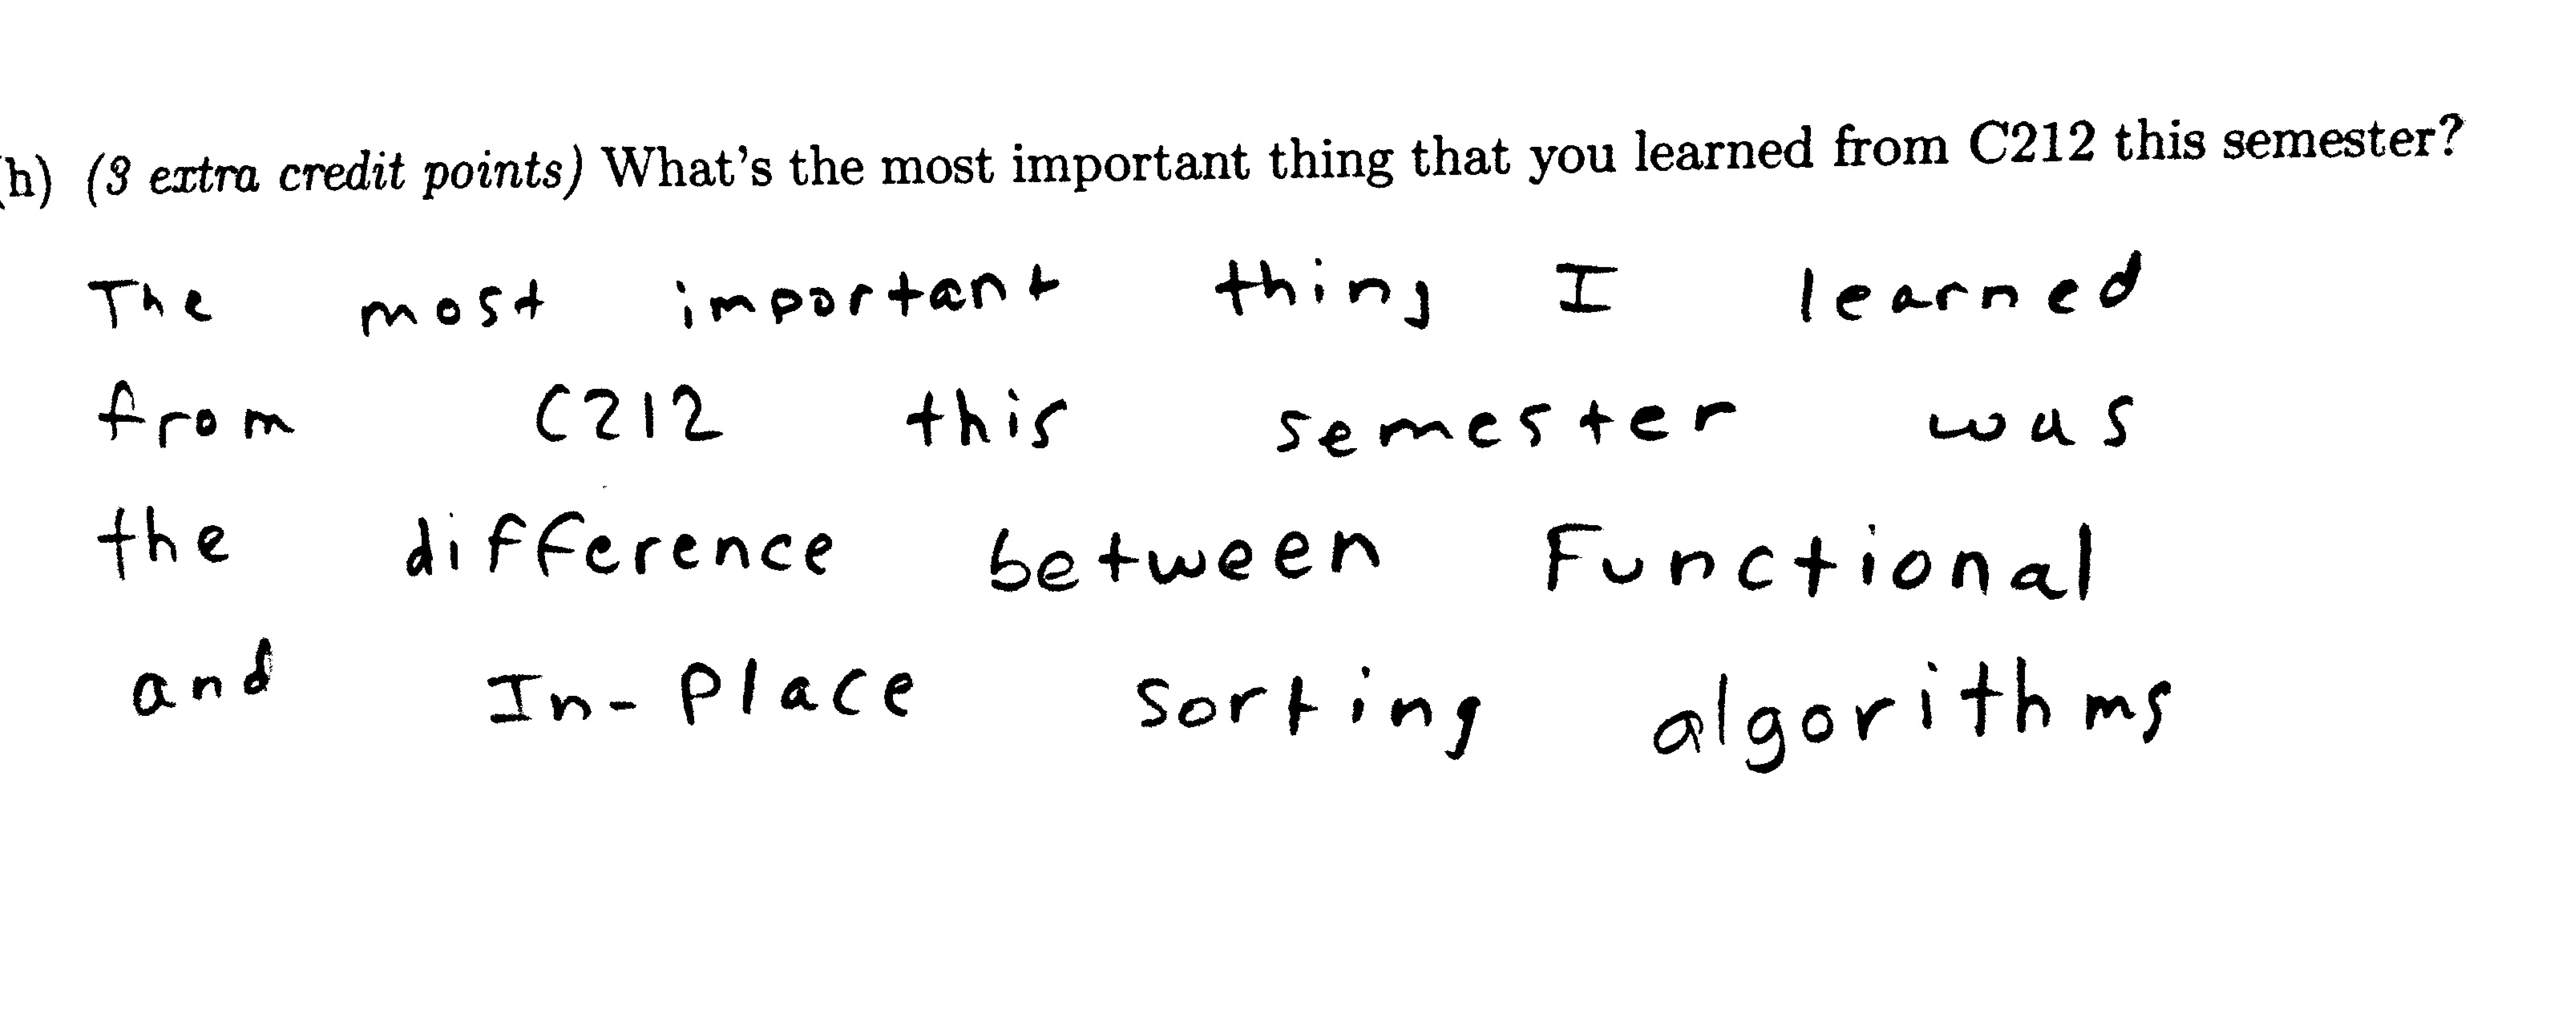 h) (3 extra credit points) What's the most important thing that you learned from C212 this semester?
The most important thing I learned
from C212 this semester was
the difference between Functional
and In-Place sorting algorithms